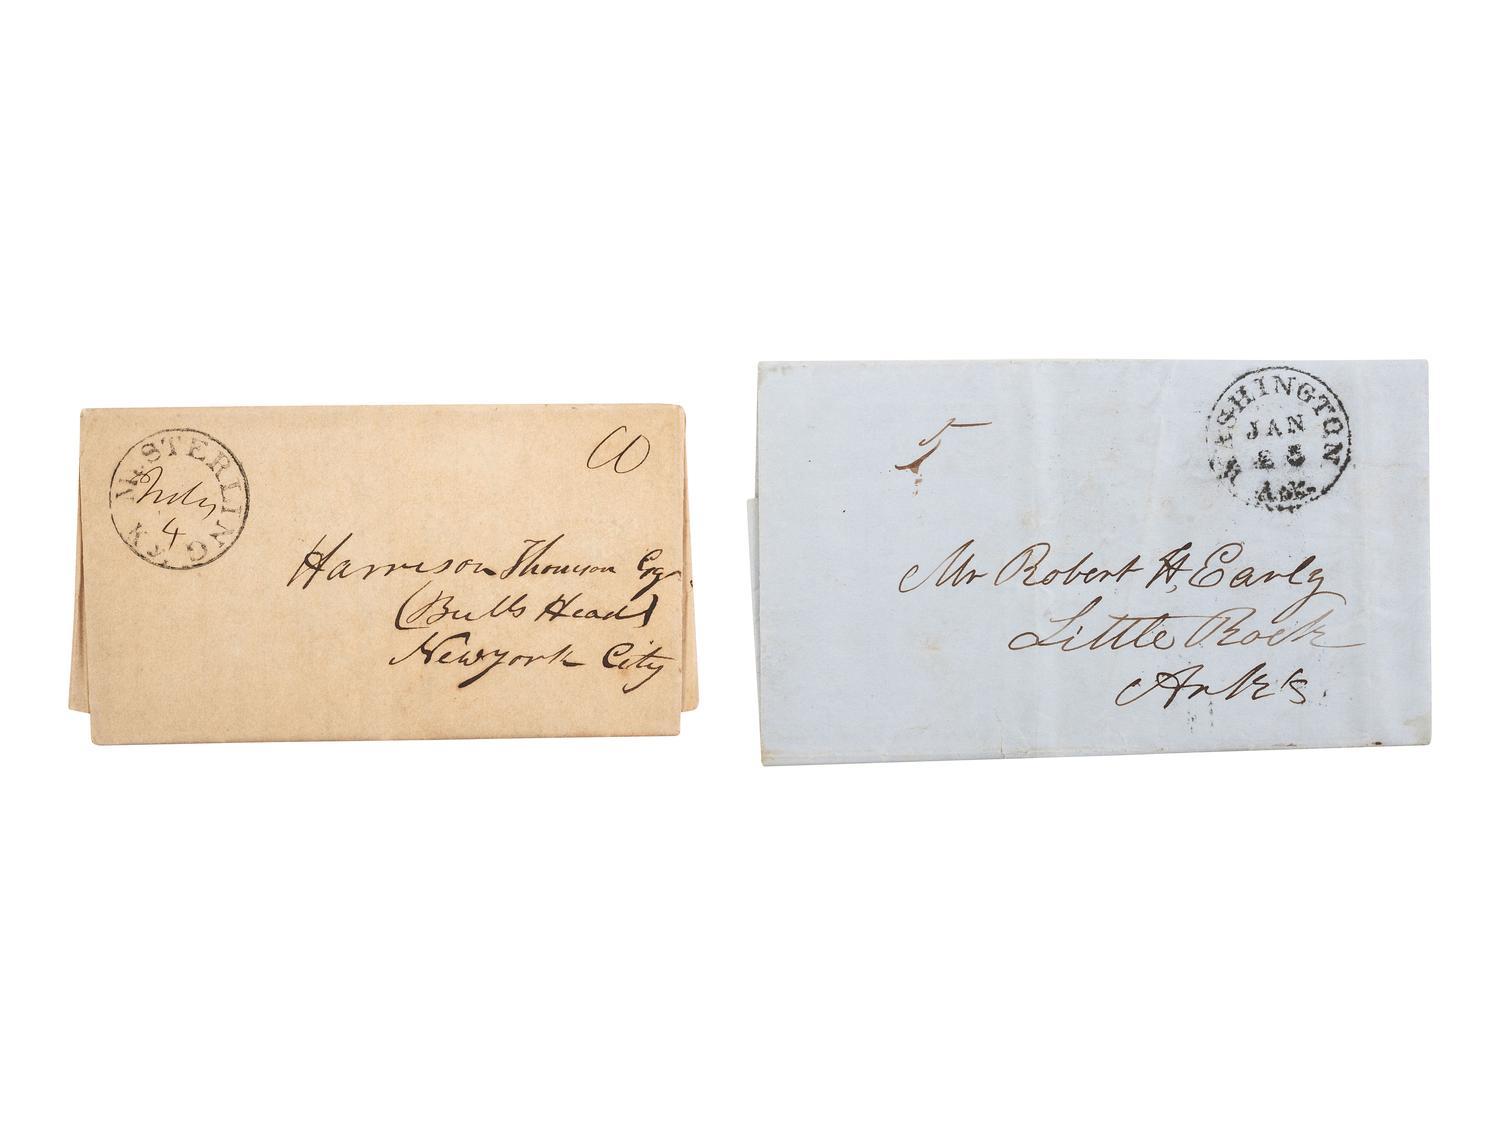 Mt STERLING
KY
July
4
Harrison Thomson Esqr
(Bulls Head)
New york City
5
WASHINGTON
JAN
25
Ark.
Mr Robert H. Early
Little Rock
Ark's